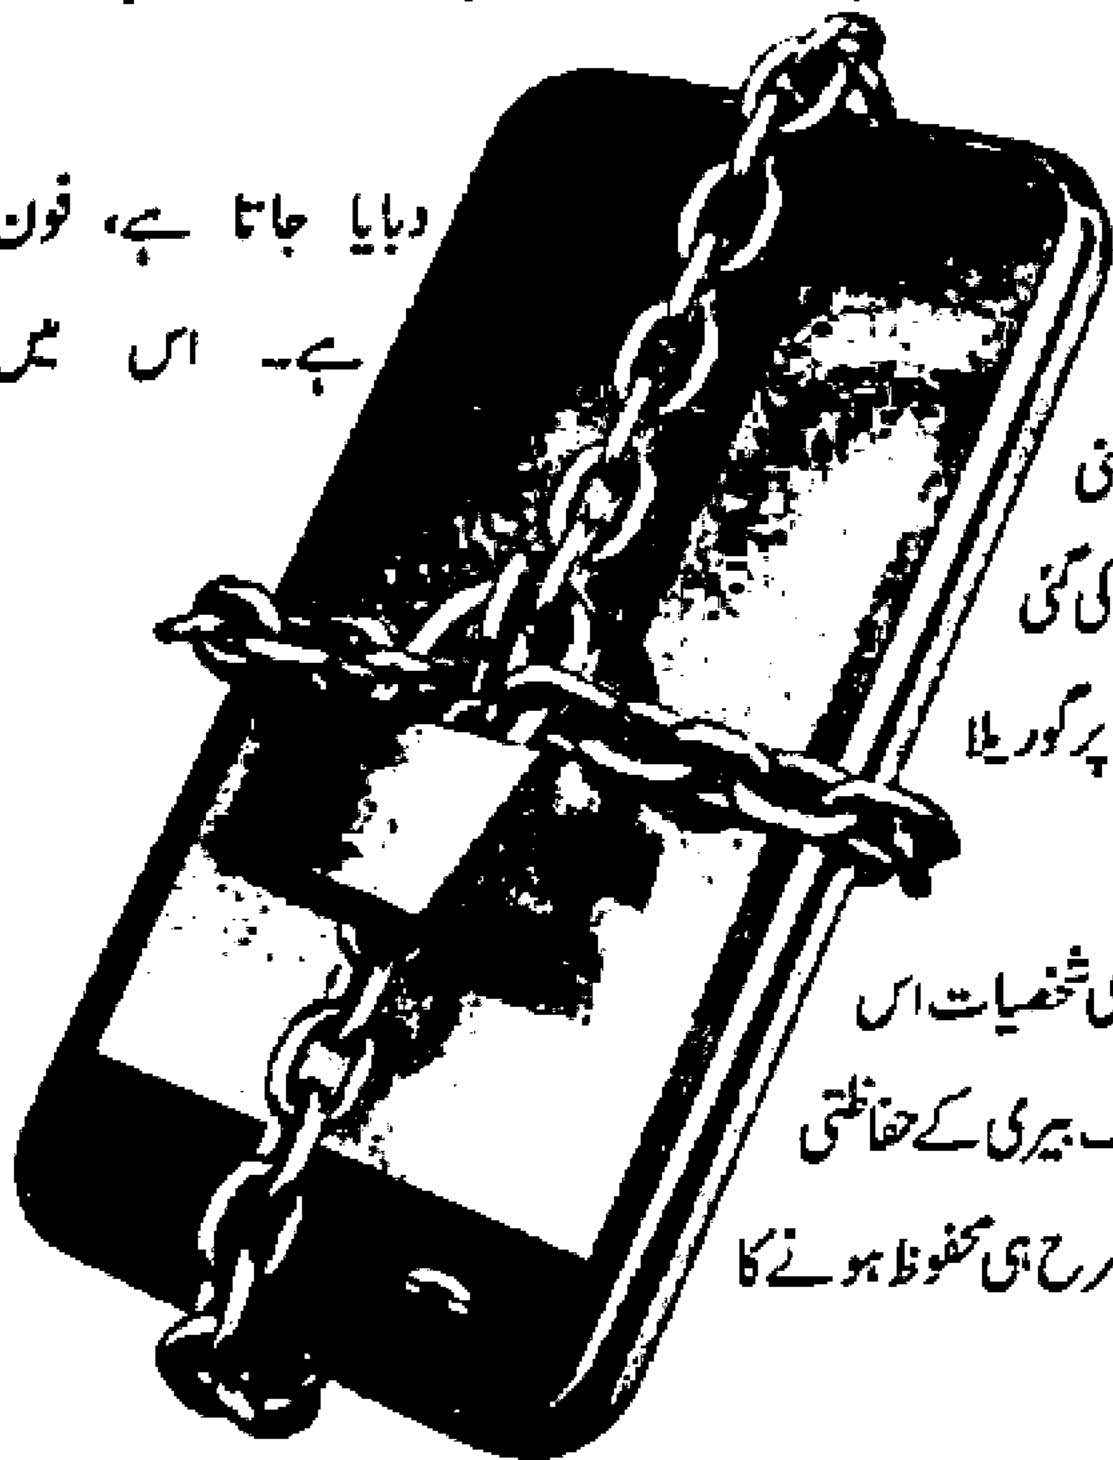 دبایا جاتا ہے، فون
ہے۔ اس میں
کی گئی
پر گوریلا
شخصیات اس
بیری کے حفاظتی
ہی محفوظ ہونے کا